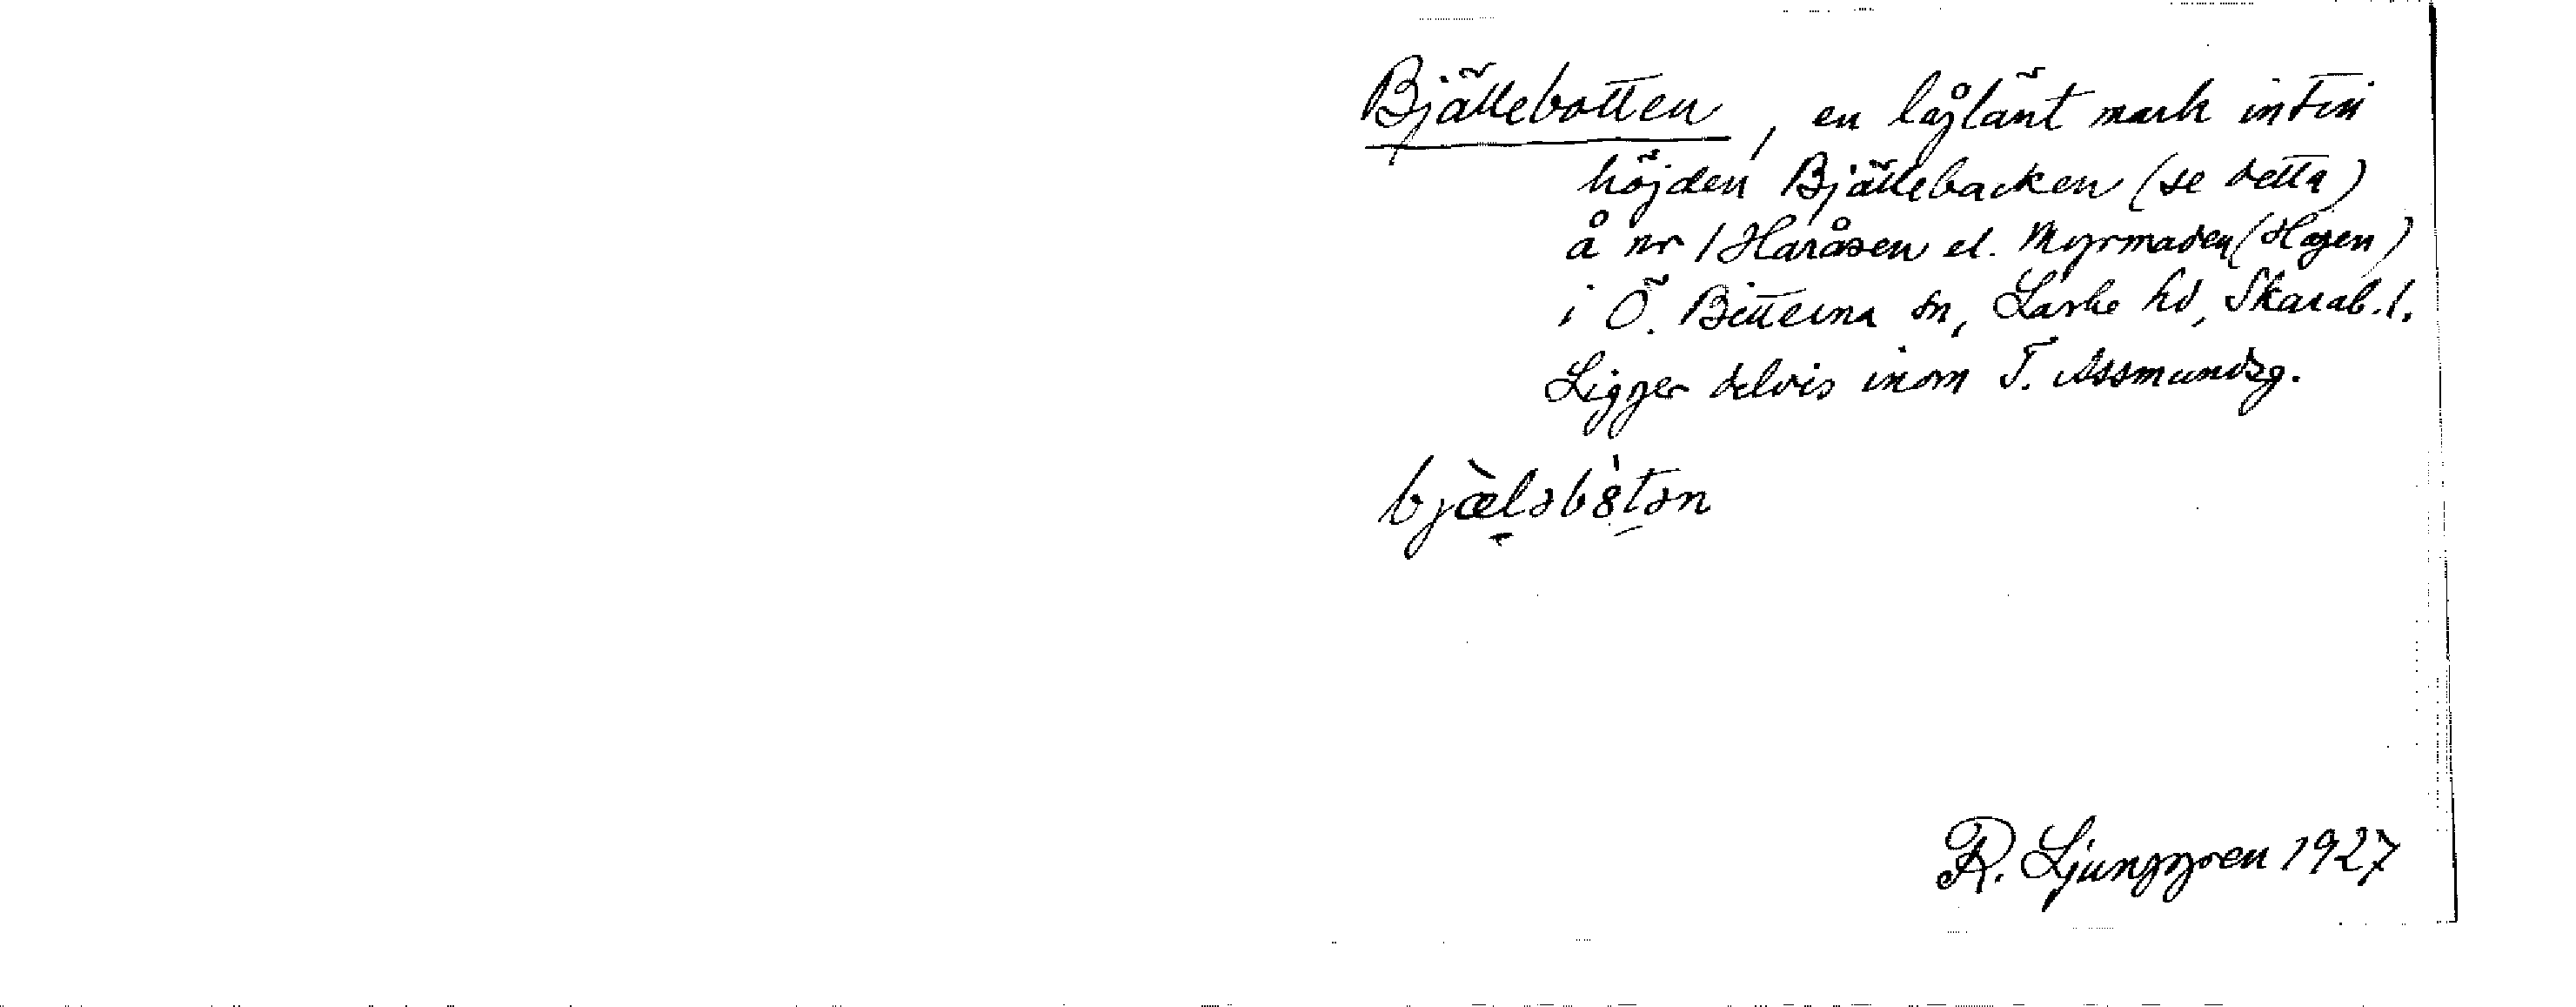 Bjällebotten, en låglänt mark intill
höjden Bjällebacken (se detta)
å nr 1 Haråsen el. Myrmaden (Hagen)
i Ö. Bitterna sn, Laske hd, Skarab. l.
Ligger delvis inom T. Assmundsg.
bjæ̀ləbò̀tən
R. Ljunggren 1927